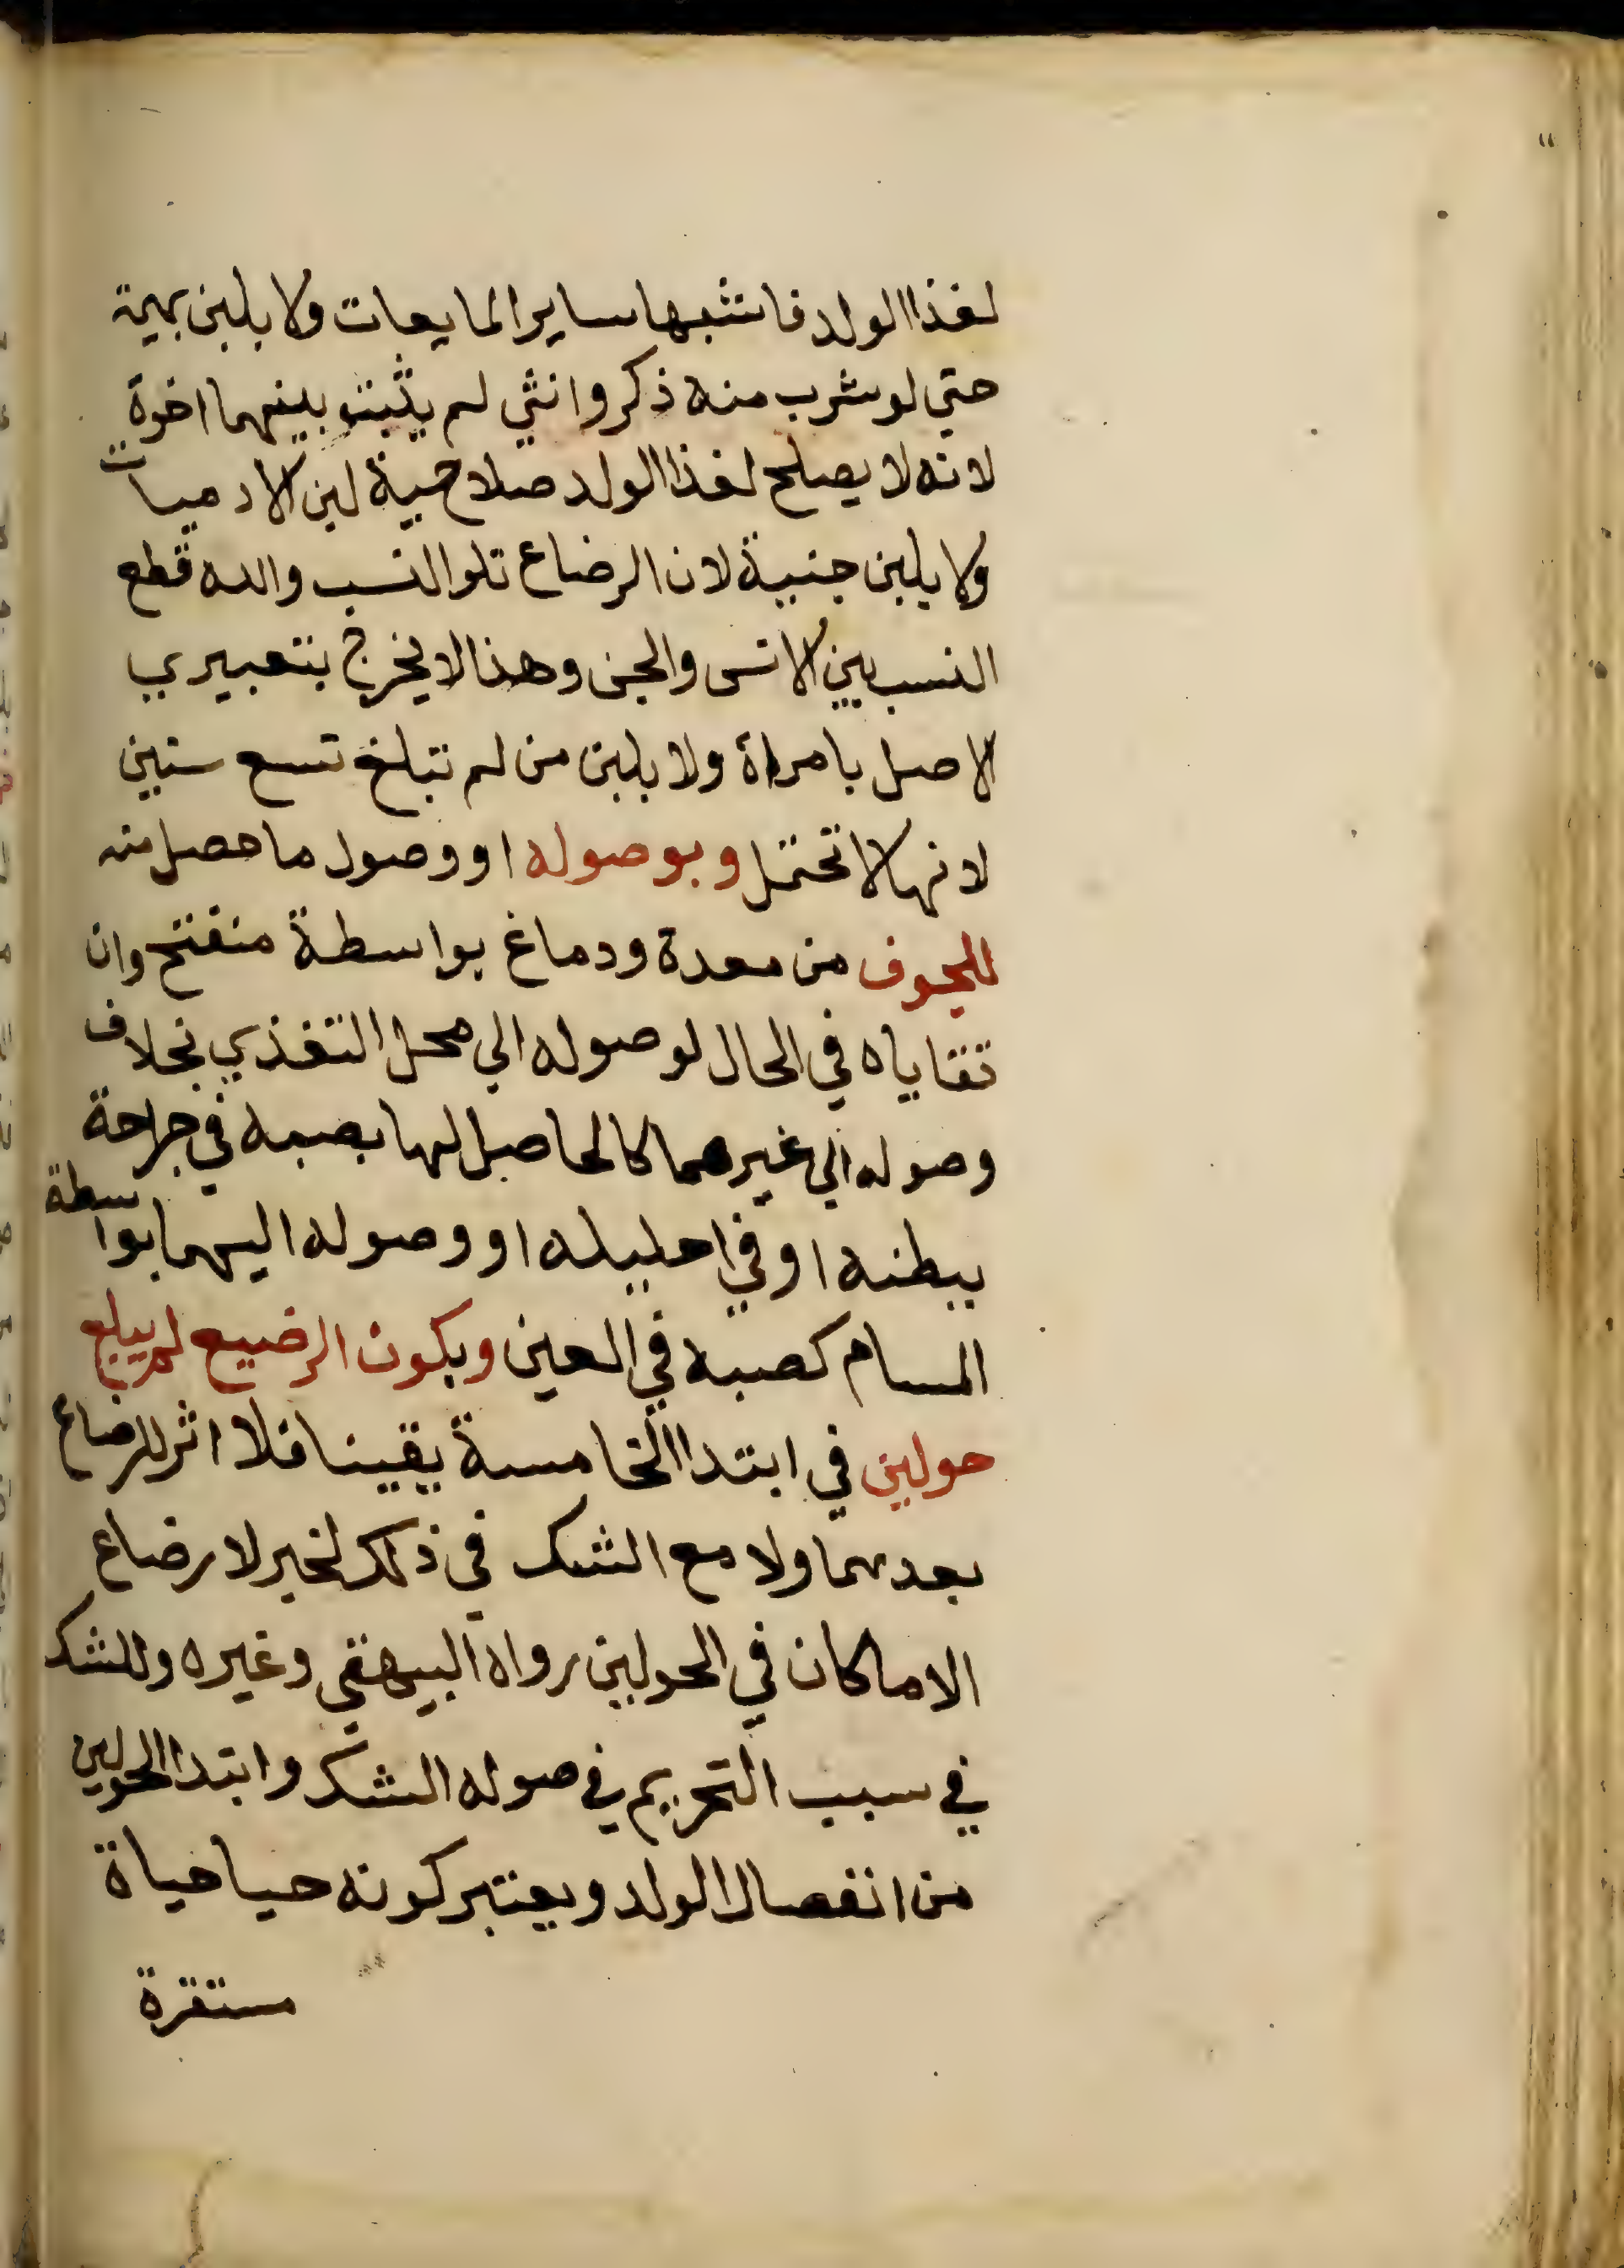 لغذا الولد فاشبها ساير المايعات ولا بلبن بهيمة
حتي لو شرب منه ذكر وانثي لم يثبت بينهما اخوة
لانه لا يصلح لغذا الولد صلاحية لبن الادميات
ولا بلبن جنية لان الرضاع تلو النسب والله قطع
النسب بين الانس والجن وهذا لا يخرج بتعبيري
الاصل بامراة ولا بلبن من لم تبلغ تسع سنين
لانها لا تحتمل وبوصوله او وصول ما حصل منه
للجوف من معدة ودماغ بواسطة منفتح وان
تقاياه في الحال لوصوله الي محل التغذي بخلاف
وصوله الي غيرهما كالحاصل لها بصبه في جراحة
ببطنه او في احليله او وصوله اليهما بواسطة
المسام كصبه في العين وبكون الرضيع لم يبلغ
حولين في ابتدا الخامسة يقينا فلا اثر للرضاع
بعدهما ولا مع الشك في ذلك لخبر لا رضاع
الا ما كان في الحولين رواه البيهقي وغيره وللشك
في سبب التحريم في صوله الشك وابتدا الحولين
من انفصال الولد ويعتبر كونه حيا حياة
مستقرة